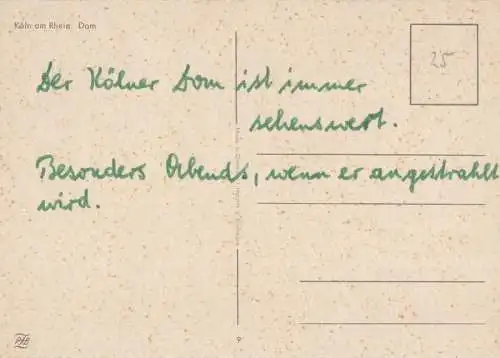 Köln am Rhein. Dom
25
Der Kölner Dom ist immer
sehenswert.
Besonders Abends, wenn er angestrahlt
wird.
9